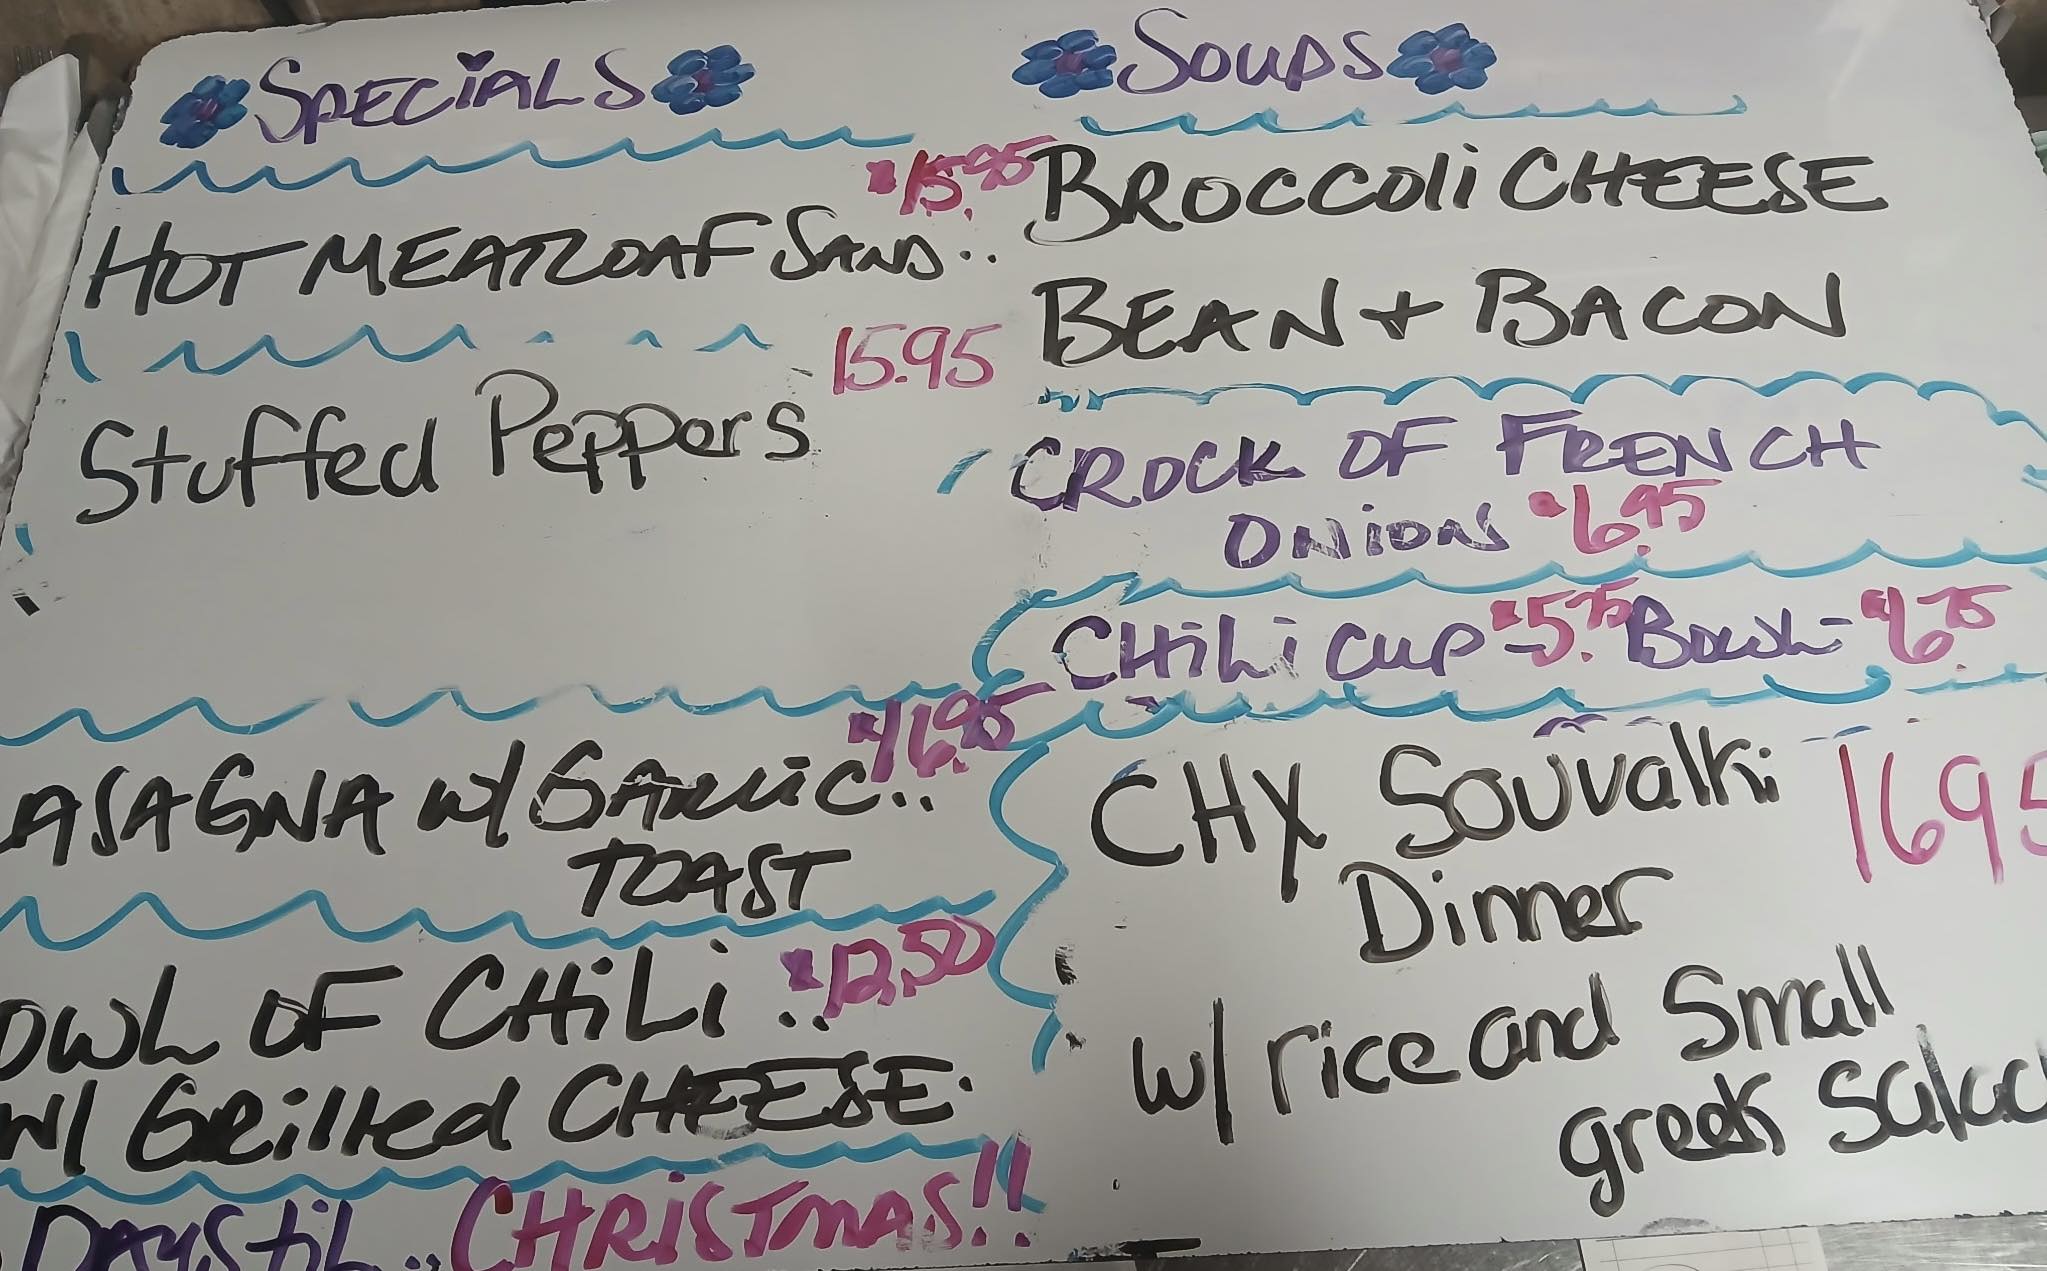 SPECiALS
$15.95
HOT MEATLOAF SAND..
15.95
Stuffed Peppers
$16.95
LASAGNA w/ GARLiC..
TOAST
$12.50
OWL OF CHiLi..
w/ GRilled CHEESE.
DAYS til.. CHRiSTMAS!!
SOUPS
BROCCOli CHEESE
BEAN + BACON
CROCK OF FRENCH
ONiON $6.95
CHiLi CUP - $5.75 BOWL - $6.75
CHX Souvalki 1695
Dinner
w/ rice and Small
greek Salad